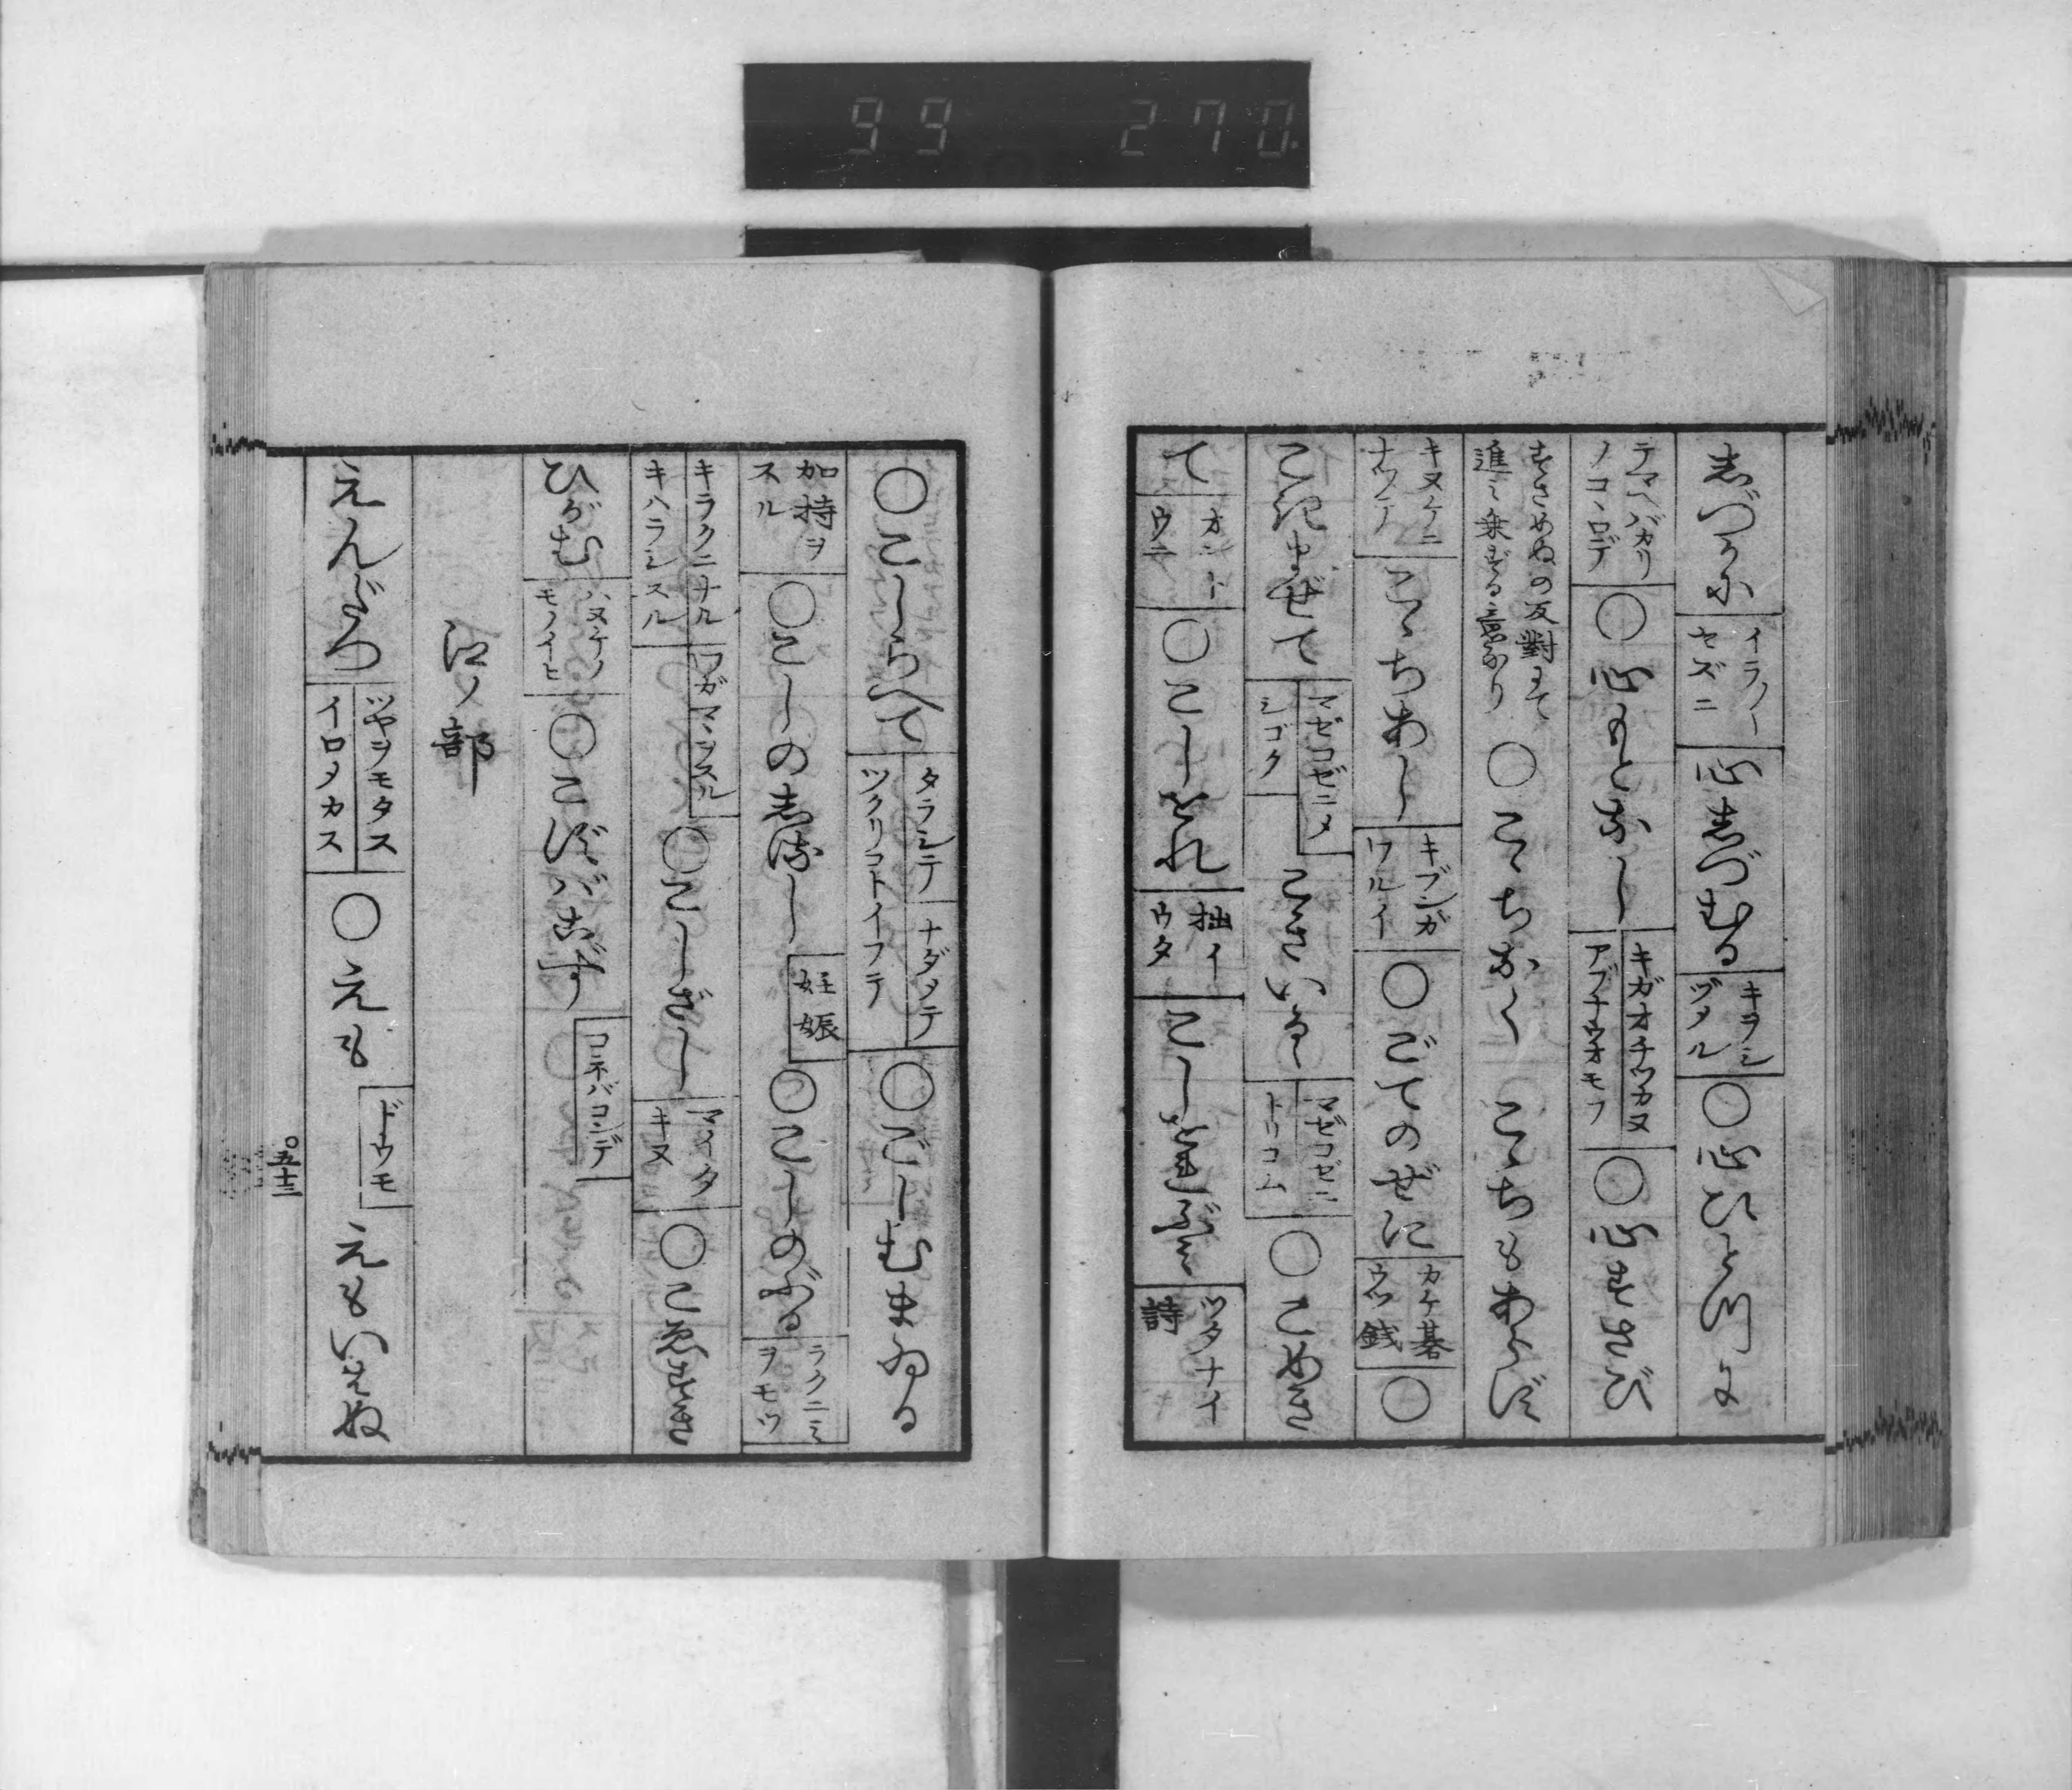 99 270.
志づかに イラ〳〵セズニ 心志づむる キヲシヅメル ○心ひとつに
テマヘバカリノコヽロデ ○心もとなし キガオチツカヌ アブナウオモフ ○心すさび
すさめぬの反對にて進ミ乗ずる意なり ○こゝちなく こゝちもあらず
キヌケニナツテ こゝちあし キブンガワルイ ○ごてのぜに カケ碁ウツ銭 ○
こきまぜて マゼコゼニメシゴク こきいる マゼコゼニトリコム ○こめき
て オホトウニ ○こしをれ 拙イウタ こしをれぶミ ツタナイ詩
○こしらへて タラシテ ナダメテ ツクリコトイフテ ○ごしむまゐる
加持ヲスル ○こしの志るし 妊娠 ○こしのぶる ラクニミヲモツ
キラクニナル キハラシスル ワガマヽヲスル ○こしざし マイタキヌ ○こゑすき
ひがむ ハヌケノモノイヒ ○こずバこず コネバコンデ
江ノ部
えんだつ ツヤヲモタス イロメカス ○えも ドウモ えもいはぬ
○五十三